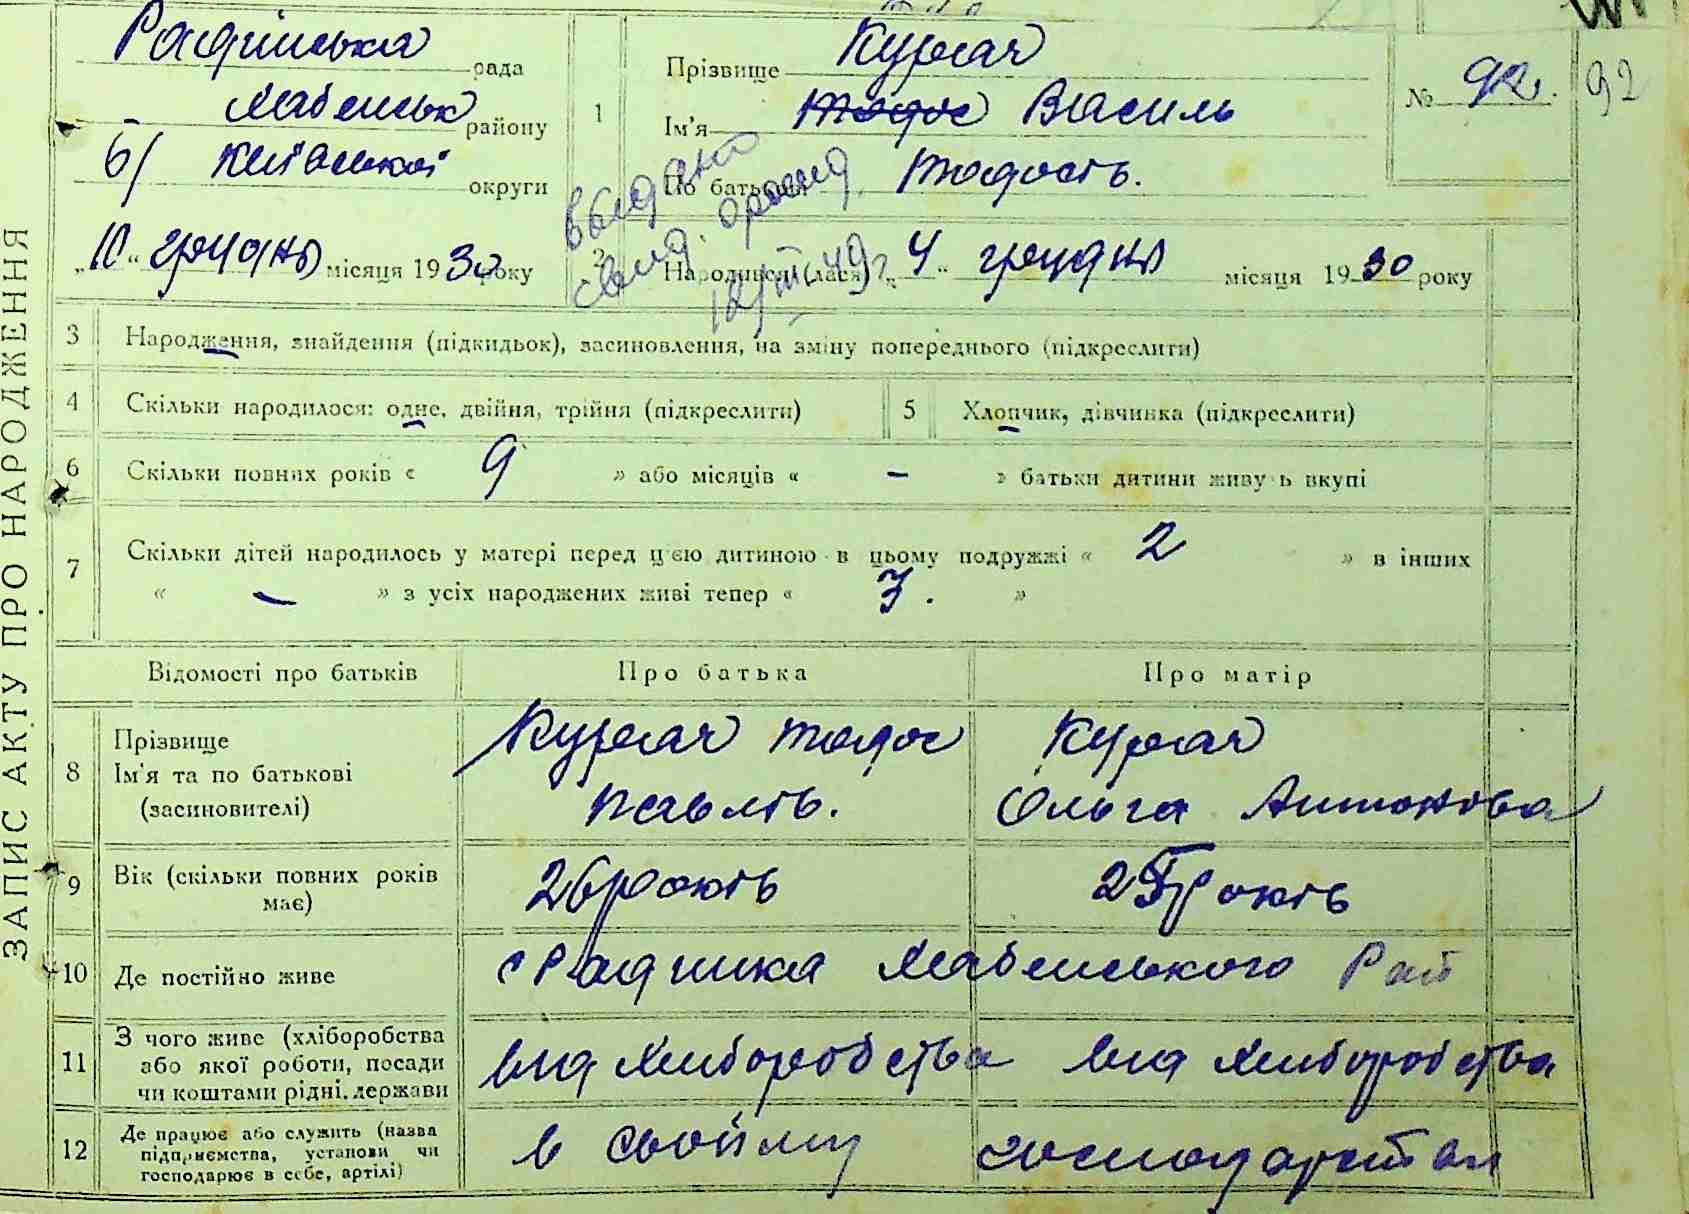 ЗАПИС АКТУ ПРО НАРОДЖЕННЯ
Радинська рада
Хабенськ району
б/ Київської округи
„10“ грудня місяця 1930 року
1
Прізвище Курсач
Ім'я Тодос Василь
По батькові Тодосів.
№ 92. 92
видано
свид. о рожд.
12/III 49 г
2
Народився (лася) „4“ грудня місяця 1930 року
3 Народження, знайдення (підкидьок), засиновлення, на зміну попереднього (підкреслити)
4 Скільки народилося: одне, двійня, трійня (підкреслити)
5 Хлопчик, дівчинка (підкреслити)
6 Скільки повних років « 9 » або місяців « – » батьки дитини живуть вкупі
7 Скільки дітей народилось у матері перед цією дитиною в цьому подружжі « 2 » в інших
« – » з усіх народжених живі тепер « 3. »
Відомості про батьків Про батька Про матір
8 Прізвище
Ім'я та по батькові
(засиновителі)
Курсач Тодос
Павлів.
Курсач
Ольга Антонова
9 Вік (скільки повних років
має)
26 років 25 років
10 Де постійно живе с Радинка Хабенського Рай
11 З чого живе (хліборобства
або якої роботи, посади
чи коштами рідні, держави
від хліборобства від хліборобства
12 Де працює або служить (назва
підприємства, установи чи
господарює в себе, артілі)
в своїму господарстві